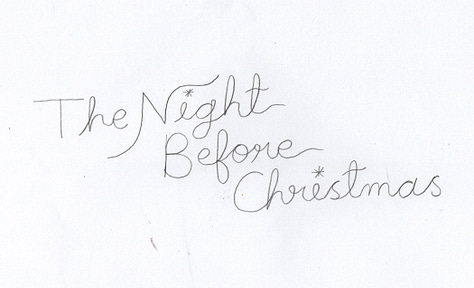 The Night
Before
Christmas